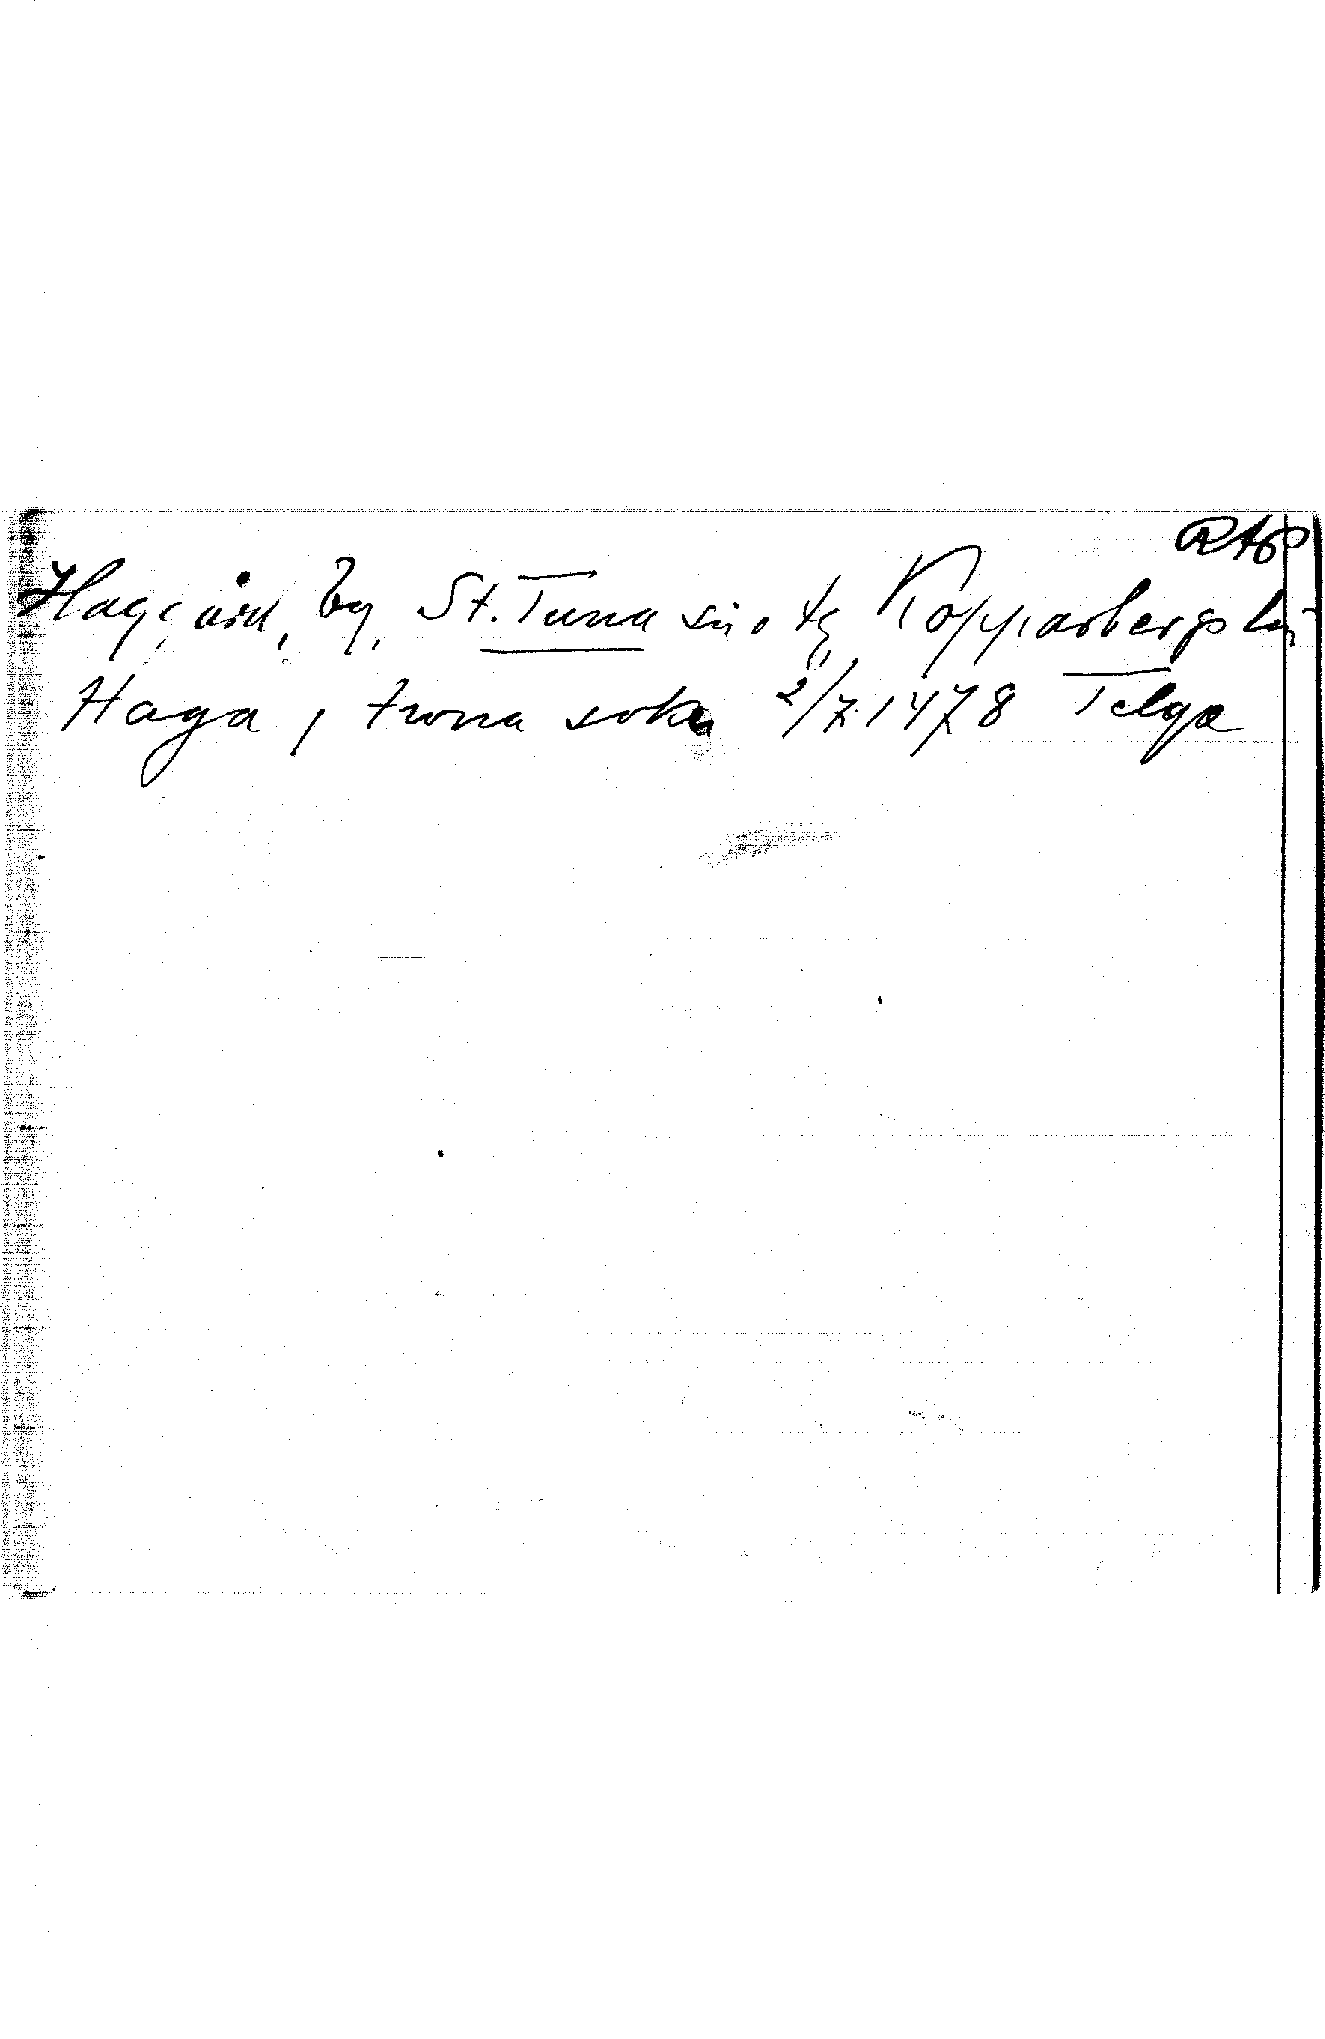 RAp
Haggård, by, St. Tuna sn o tg Kopparbergs län
Haga, i twna sokn 2/7 1478 Telga